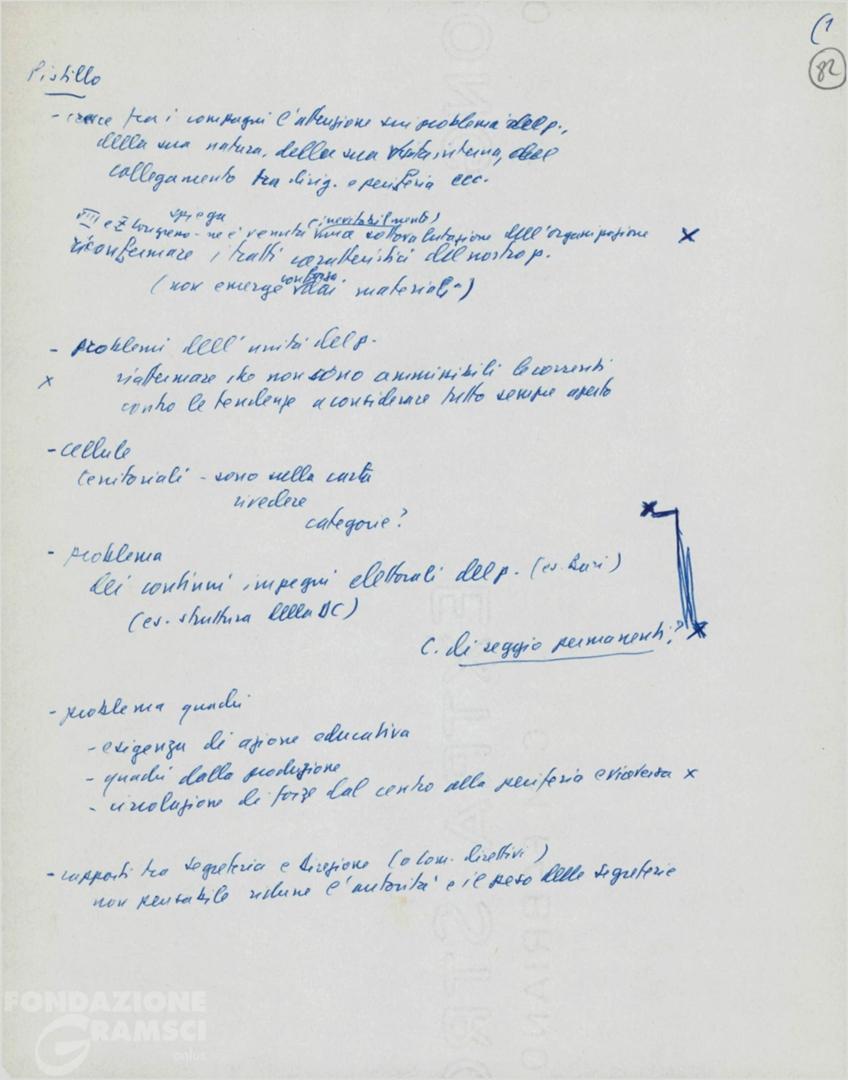 (1
82
Pistillo
- tra i compagni l'attenzione sui problemi del p.,
della sua natura, della sua vita interna, del
collegamento tra dirig. e periferia ecc.
spiega (inevitabilmente)
VIII e X Congresso - ne è venuta una sottovalutazione dell'organizzazione x
riconfermare i tratti caratteristici del nostro p.
(non emerge con forza dai materiali)
- problemi dell'unità del p.
x riaffermare che non sono ammissibili le correnti
contro le tendenze a considerare tutto sempre aperto
- cellule
territoriali - sono sulla carta
rivedere
categorie?
x
- problema
dei continui impegni elettorali del p. (es. Bari)
(es. struttura della DC)
C. di seggio permanenti? x
- problema quadri
- esigenza di azione educativa
- quadri dalla produzione
- circolazione di forze dal centro alla periferia e viceversa x
- rapporti tra segreteria e direzione (o Com. direttivi)
non pensabile ridurre l'autorità e il peso delle segreterie
FONDAZIONE
GRAMSCI
onlus